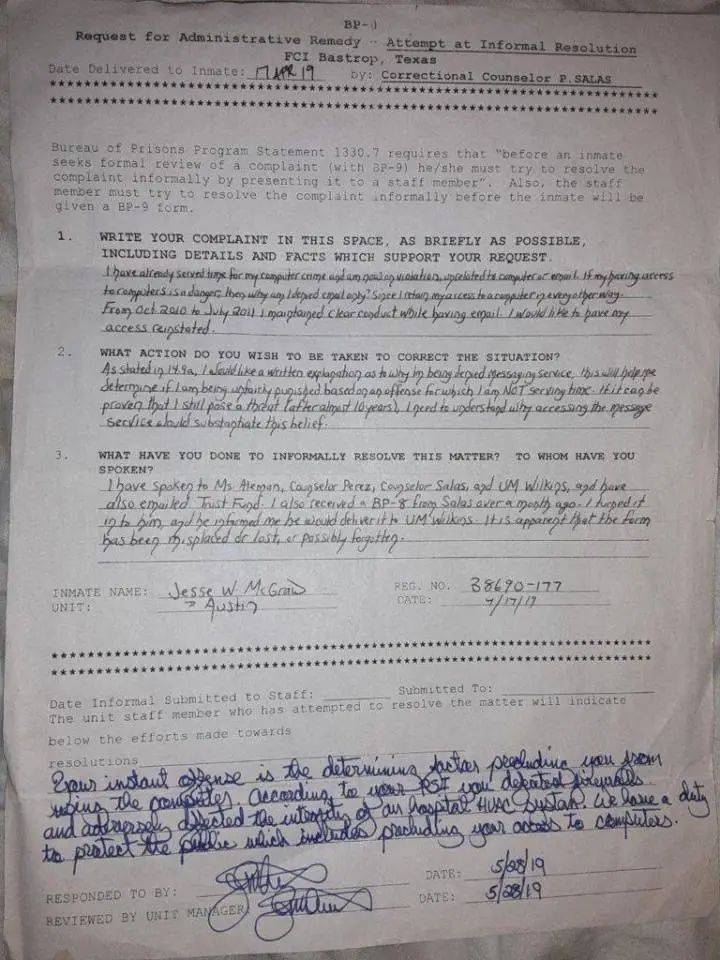 BP-
Request for Administrative Remedy - Attempt at Informal Resolution
FCI Bastrop, Texas
Date Delivered to Inmate: 17 APR 19 by: Correctional Counselor P.SALAS
*********************************************************************
*********************************************************************
Bureau of Prisons Program Statement 1330.7 requires that "before an inmate
seeks formal review of a complaint (with BP-9) he/she must try to resolve the
complaint informally by presenting it to a staff member". Also, the staff
member must try to resolve the complaint informally before the inmate will be
given a BP-9 form.
1. WRITE YOUR COMPLAINT IN THIS SPACE, AS BRIEFLY AS POSSIBLE,
INCLUDING DETAILS AND FACTS WHICH SUPPORT YOUR REQUEST.
I have already served time for my computer crime and am now on violation, unrelated to computer or email. If my having access
to computers is a danger, then why am I denied email only? Since I retain my access to a computer in every other way.
From Oct 2010 to July 2011 I maintained clear conduct while having email. I would like to have my
access reinstated.
2. WHAT ACTION DO YOU WISH TO BE TAKEN TO CORRECT THE SITUATION?
As stated in 14.9a, I would like a written explanation as to why I'm being denied messaging service. this will help me
determine if I am being unfairly punished based on an offense for which I am NOT serving time. If it can be
proven that I still pose a threat (after almost 10 years), I need to understand why accessing the message
service would substantiate this belief.
3. WHAT HAVE YOU DONE TO INFORMALLY RESOLVE THIS MATTER? TO WHOM HAVE YOU
SPOKEN?
I have spoken to Ms. Aleman, Counselor Perez, Counselor Salas, and UM Wilkins, and have
also emailed Trust Fund. I also received a BP-8 from Salas over a month ago. I turned it
in to him, and he informed me he would deliver it to UM Wilkins. It is apparent that the form
has been misplaced or lost, or possibly forgotten.
INMATE NAME: Jesse W. McGraw REG. NO. 38690-177
UNIT: Austin DATE: 4/17/19
*********************************************************************
*********************************************************************
Date Informal Submitted to Staff: Submitted To:
The unit staff member who has attempted to resolve the matter will indicate
below the efforts made towards
resolutions
Your instant offense is the determining factor precluding you from
using the computer. According to your PSI you defeated firewalls
and adversely affected the integrity of an hospital HVAC system. We have a duty
to protect the public which includes precluding your access to computers.
RESPONDED TO BY: DATE: 5/28/19
REVIEWED BY UNIT MANAGER: DATE: 5/28/19